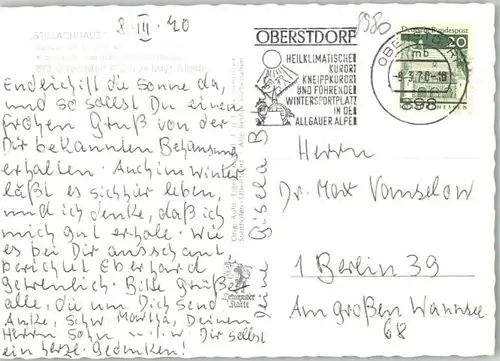 8.III.70
1980
"STILLACHHAUS"
Endlich ist die Sonne da,
und so sollst Du einen
frohen Gruß von der
Dir bekannten Behausung
erhalten. Auch im Winter
läßt es sich hier leben,
und ich denke, daß ich
mich gut erhole. Wie
es bei Dir ausschaut,
berichtet Eberhard
getreulich. Bitte Grüße
alle, die um Dich sind
Anke, Schw. Martha, Deinen
Herrn Sohn u. Dir selbst
ein herzl. Gedenken!
Deine Gisela B
OBERSTDORF
HEILKLIMATISCHER
KURORT
KNEIPPKURORT
UND FÜHRENDER
WINTERSPORTPLATZ
IN DEN
ALLGÄUER ALPEN
Deutsche Bundespost
20
mb
-9.3.70-18
898
Herrn
Dr. Max Vanselow
1 Berlin 39
Am Großen Wannsee
68